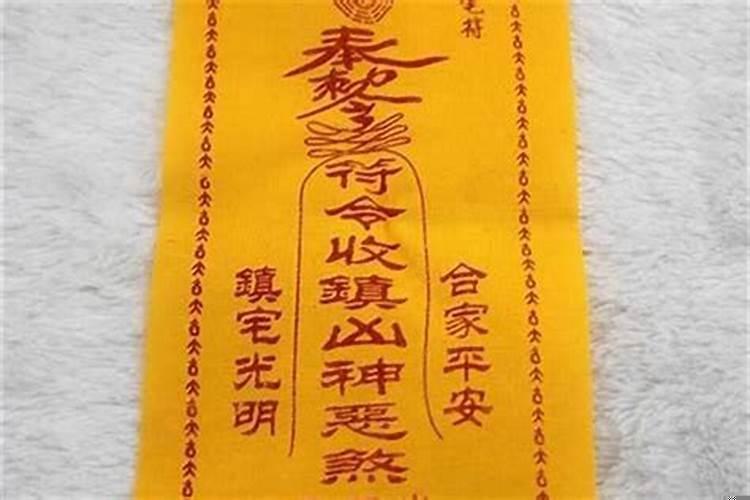 符
奉敕令
符令收鎮凶神惡煞
合家平安
鎮宅光明